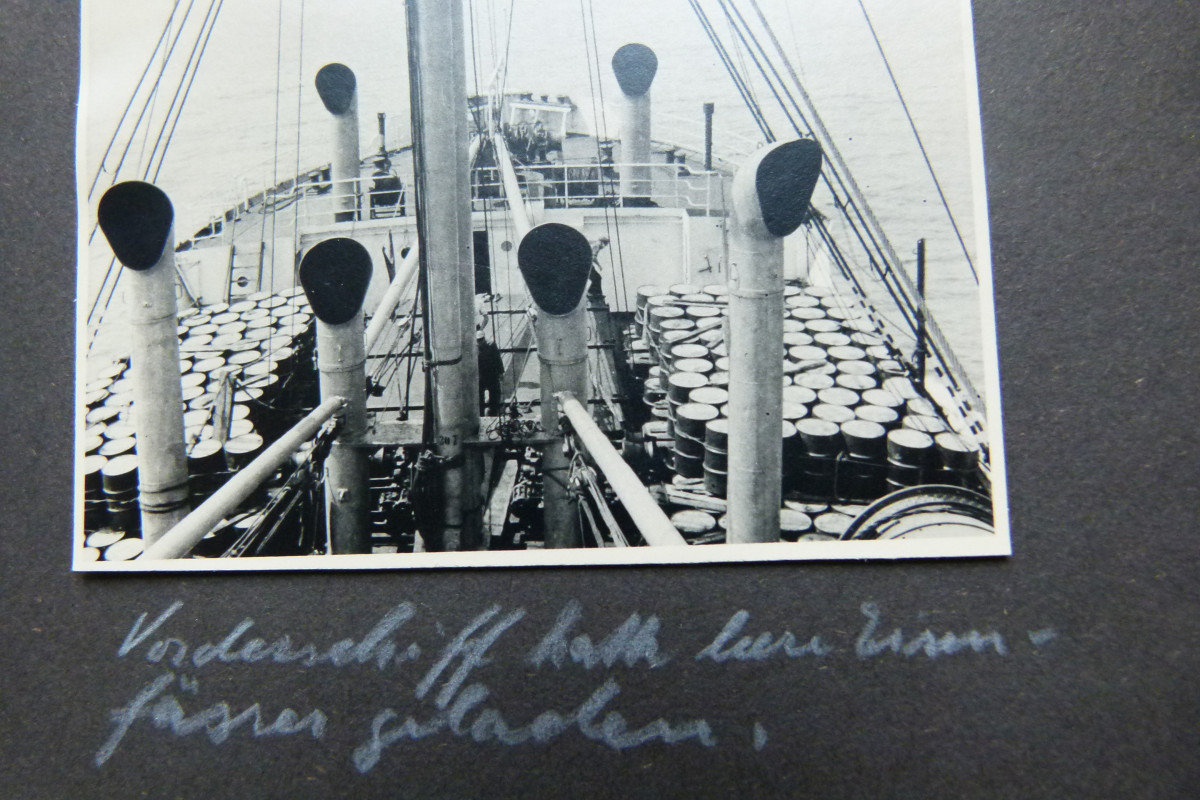 Vorderschiff hatte leere Eisen-
fässer geladen.